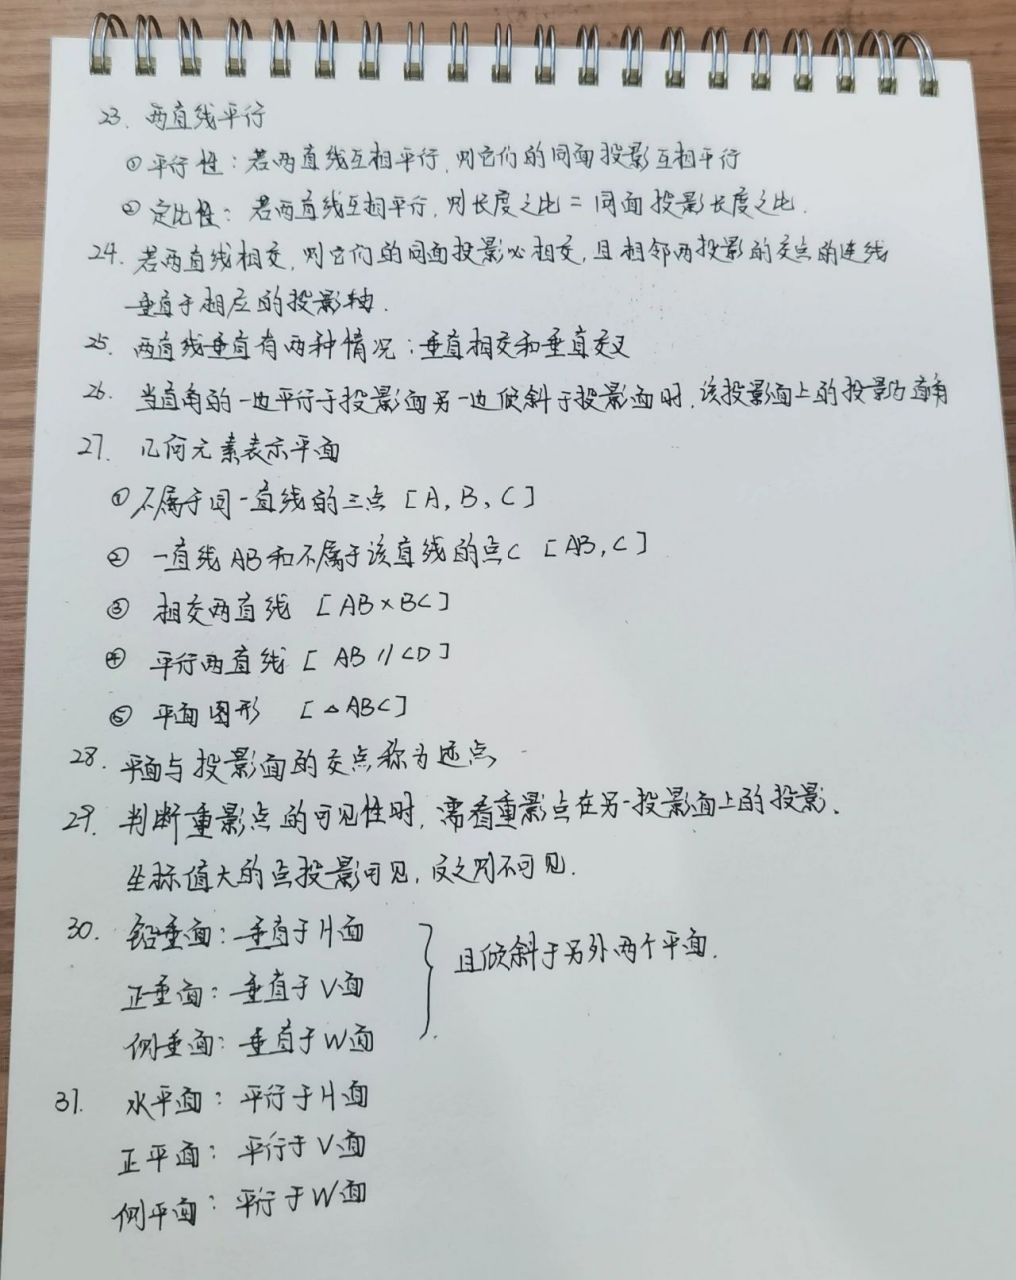 23. 两直线平行
① 平行性：若两直线互相平行，则它们的同面投影互相平行
② 定比性：若两直线互相平行，则长度之比 = 同面投影长度之比.
24. 若两直线相交，则它们的同面投影必相交，且相邻两投影的交点的连线
垂直于相应的投影轴.
25. 两直线垂直有两种情况：垂直相交和垂直交叉
26. 当直角的一边平行于投影面另一边倾斜于投影面时，该投影面上的投影为直角
27. 几何元素表示平面
① 不属于同一直线的三点 [A, B, C]
② 一直线AB和不属于该直线的点C [AB, C]
③ 相交两直线 [AB×BC]
④ 平行两直线 [AB//CD]
⑤ 平面图形 [△ABC]
28. 平面与投影面的交点称为迹点
29. 判断重影点的可见性时，需看重影点在另一投影面上的投影、
坐标值大的点投影可见，反之则不可见.
30. 铅垂面：垂直于H面
正垂面：垂直于V面
侧垂面：垂直于W面
且倾斜于另外两个平面.
31. 水平面：平行于H面
正平面：平行于V面
侧平面：平行于W面